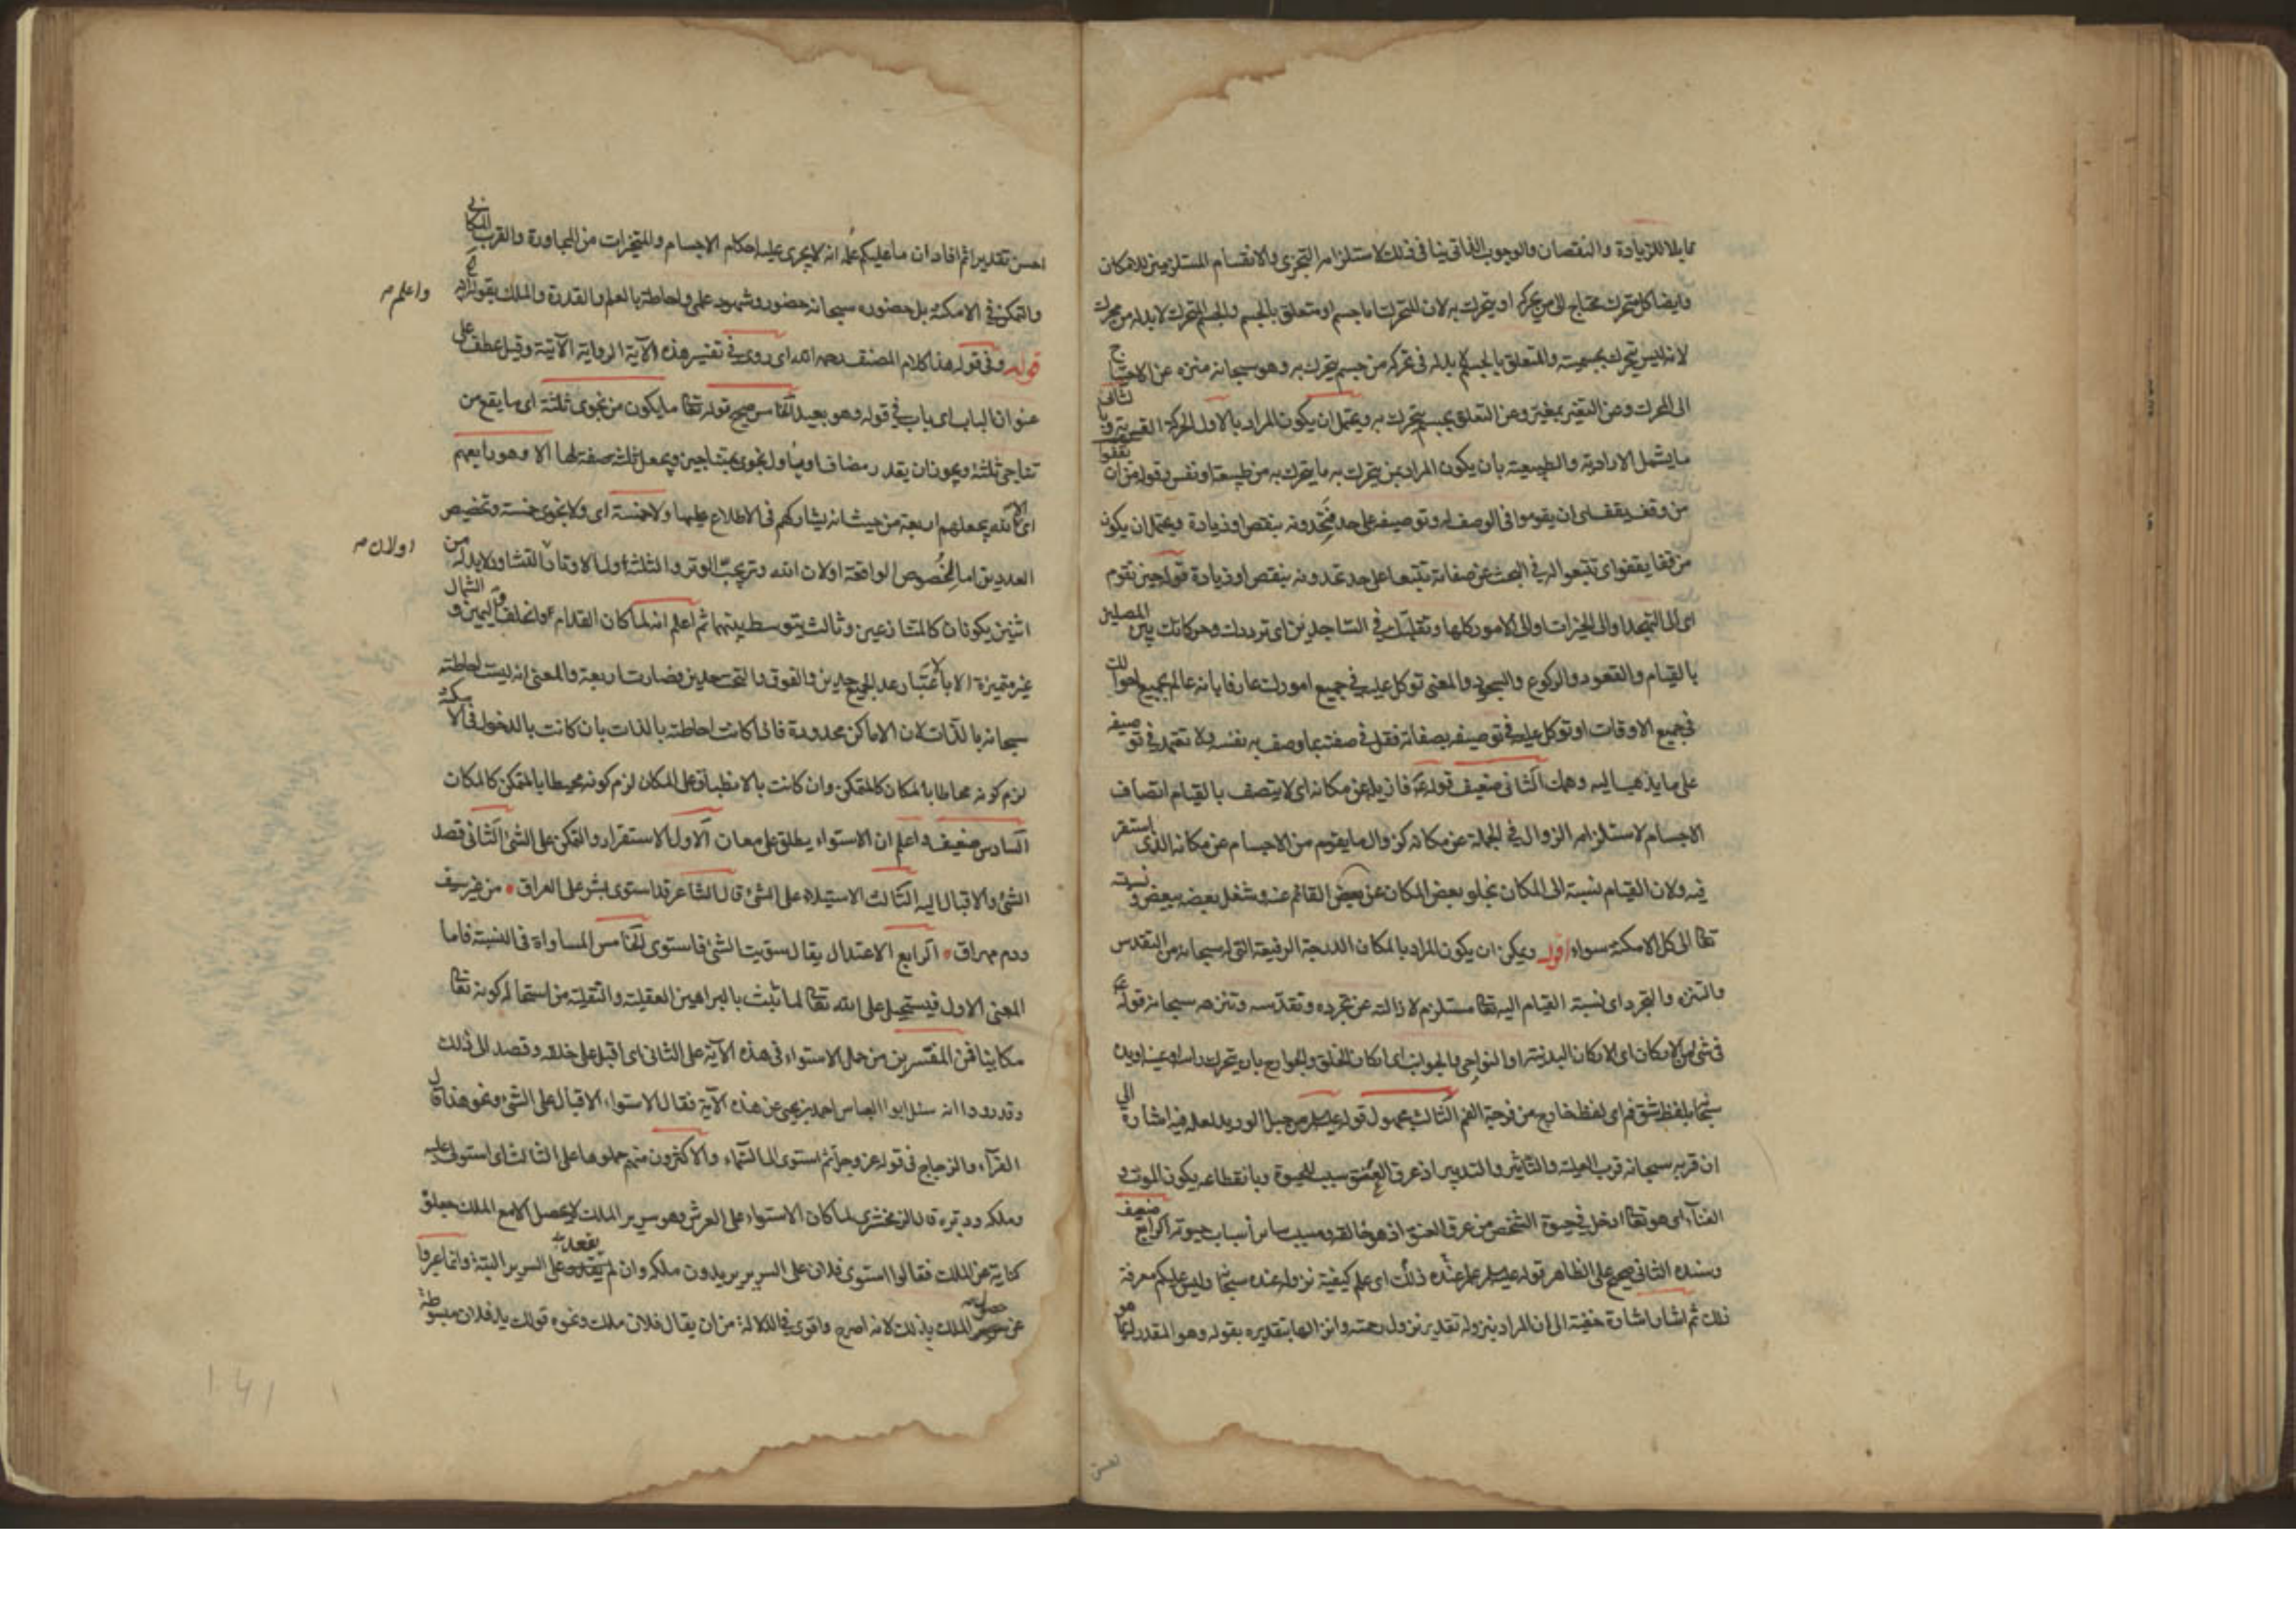 قابلا للزيادة والنقصان والوجوب الذاتي ينافي ذلك لاستلزامه التجزي والانقسام المستلزمين للامكان
وايضا كل متحرك محتاج الى من يحركه او يتحرك به لان المتحرك اما جسم او متعلق بالجسم والجسم المتحرك لابد له من محرك
لانه ليس يتحرك بجسميته والمتعلق بالجسم لابد له في تحركه من جسم يتحرك به وهو سبحانه منزه عن الاحتياج
الى المحرك وعن التغير بمغير وعن التعلق بجسم يتحرك به ويحتمل ان يكون المراد بالاول الحركة القسرية وبالثاني
ما يشمل الارادية والطبيعية بان يكون المراد بمن يتحرك به ما يتحرك به من طبيعة او نفس وقوله من ان تقفوا
من وقف يقف اى ان يقوموا في الوصف له وتوصيفه على حد فتحدونه بنقص او زيادة ويحتمل ان يكون
من قفا يقفو اى تتبعوا له في البحث عن صفاته تتبعا على حد تحدونه بنقص او زيادة قوله حين تقوم
اى الى التهجد او الى الخيرات او الى الامور كلها وتقلبك في الساجدين اى ترددك وحركاتك بين المصلين
بالقيام والقعود والركوع والسجود والمعنى توكل عليه في جميع امورك عارفا بانه عالم بجميع احوالك
في جميع الاوقات او توكل عليه في توصيفه بصفاته فقل في صفته بما وصف به نفسه ولا تعتمد في توصيفه
على ما يذهب اليه وهمك الثاني ضعيف قوله ع فازيله عن مكانه اى لا يتصف بالقيام اتصاف
الاجسام لاستلزامه الزوال في الجملة عن مكانه كزوال ما يقوم من الاجسام عن مكانه الذي استقر
فيه ولان القيام نسبة الى المكان بخلو بعض المكان عن بعض القائم عنه وشغل بعضه ببعض ونسبته
تعا الى كل الامكنة سواء اقول ويمكن ان يكون المراد بالمكان الدرجة الرفيعة التي له سبحانه من التقدس
والتنزه والتجرد اى نسبة القيام اليه تعا مستلزم لازالته عن تجرده وتقدسه وتنزهه سبحانه قوله ع
في شئ من الاركان اى الاركان البدنية او النواحي والجوانب اى اركان الخلق والجوارح بان يتحرك راسه او عينه او يده
سبحانه بلفظ شق فم اى لفظ خارج من فرجة الفم الثالث مجهول قوله من حبل الوريد لعله فيه اشارة الى
ان قربه سبحانه قرب العلية والتاثير والتدبير اذ عرق العنق سبب للحيوة وبانقطاعه يكون الموت و
الفناء اى هو تعا ادخل في حيوة الشخص من عرق العنق اذ هو خالقه ومسبب ساير اسباب حيوته الرابع ضعيف
وسنده الثاني صحيح على الظاهر قوله علم عنده ذلك اى علم كيفية نزوله عنده سبحانه وليس عليكم معرفة
ذلك ثم اشار اشارة خفية الى ان المراد بنزوله تقدير نزول رحمته وانزالها بتقديره بقوله وهو المقدر له بما هو
احسن تقديرا ثم افاد ان ما عليكم علمه انه لا يجرى عليه احكام الاجسام والمتحيزات من المجاورة والقرب المكاني
والتمكن في الامكنة بل حضوره سبحانه حضور وشهود علمي واحاطة بالعلم والقدرة والملك بقوله ع
واعلم صح
قوله وفي قوله هذا كلام المصنف رحمه الله اى روى في تفسير هذه الآية الرواية الآتية وقيل عطف على
عنوان الباب اى باب في قوله وهو بعيد الخامس صحيح قوله تعا ما يكون من نجوى ثلثة اى ما يقع من
تناجي ثلثة ويجوز ان يقدر مضاف او يأول نجوى بمتناجين ويجعل ثلثة صفة لها الا وهو رابعهم
اى الا الله يجعلهم اربعة من حيث انه يشاركهم في الاطلاع عليها ولا خمسة اى ولا نجوى خمسة وتخصيص
العددين اما لخصوص الواقعة او لان الله وتر يحب الوتر والثلثة اول الاوتار او لان التشاور لابد له من
او لان صح
اثنين يكونان كالمتنازعين وثالث يتوسط بينهما ثم اعلم انه لما كان القدام والخلف واليمين والشمال
غير متميزة الا بالاعتبار عد الجميع حدين والفوق والتحت حدين فصارت اربعة والمعنى انه ليست احاطته
سبحانه بالذات لان الاماكن محدودة فاذا كانت احاطته بالذات بان كانت بالدخول في الامكنة
لزم كونه محاطا بالمكان كالمتمكن وان كانت بالانطباق على المكان لزم كونه محيطا بالمتمكن كالمكان
السادس ضعيف واعلم ان الاستواء يطلق على معان الاول الاستقرار والتمكن على الشئ الثاني قصد
الشئ والاقبال اليه الثالث الاستيلاء على الشئ قال الشاعر قد استوى بشر على العراق • من غير سيف
ودم مهراق • الرابع الاعتدال يقال سويت الشئ فاستوى الخامس المساواة في النسبة فاما
المعنى الاول فيستحيل على الله تعا لما ثبت بالبراهين العقلية والنقلية من استحالة كونه تعا
مكانيا فمن المفسرين من حمل الاستواء في هذه الآية على الثاني اى اقبل على خلقه وقصد الى ذلك
وقد رووا انه سئل ابو العباس احمد بن يحيى عن هذه الآية فقال الاستواء الاقبال على الشئ ونحو هذا قال
الفراء والزجاج في قوله عز وجل ثم استوى الى السماء والاكثرون منهم حملوها على الثالث اى استولى عليه
وملكه ودبره قال الزمخشري لما كان الاستواء على العرش وهو سرير الملك لا يحصل الا مع الملك جعلوه
كناية عن الملك فقالوا استوى فلان على السرير يريدون ملكه وان لم يقعد على السرير البتة وانما عبروا
عن حصول الملك بذلك لانه اصرح واقوى في الدلالة من ان يقال فلان ملك ونحوه قولك يد فلان مبسوطة